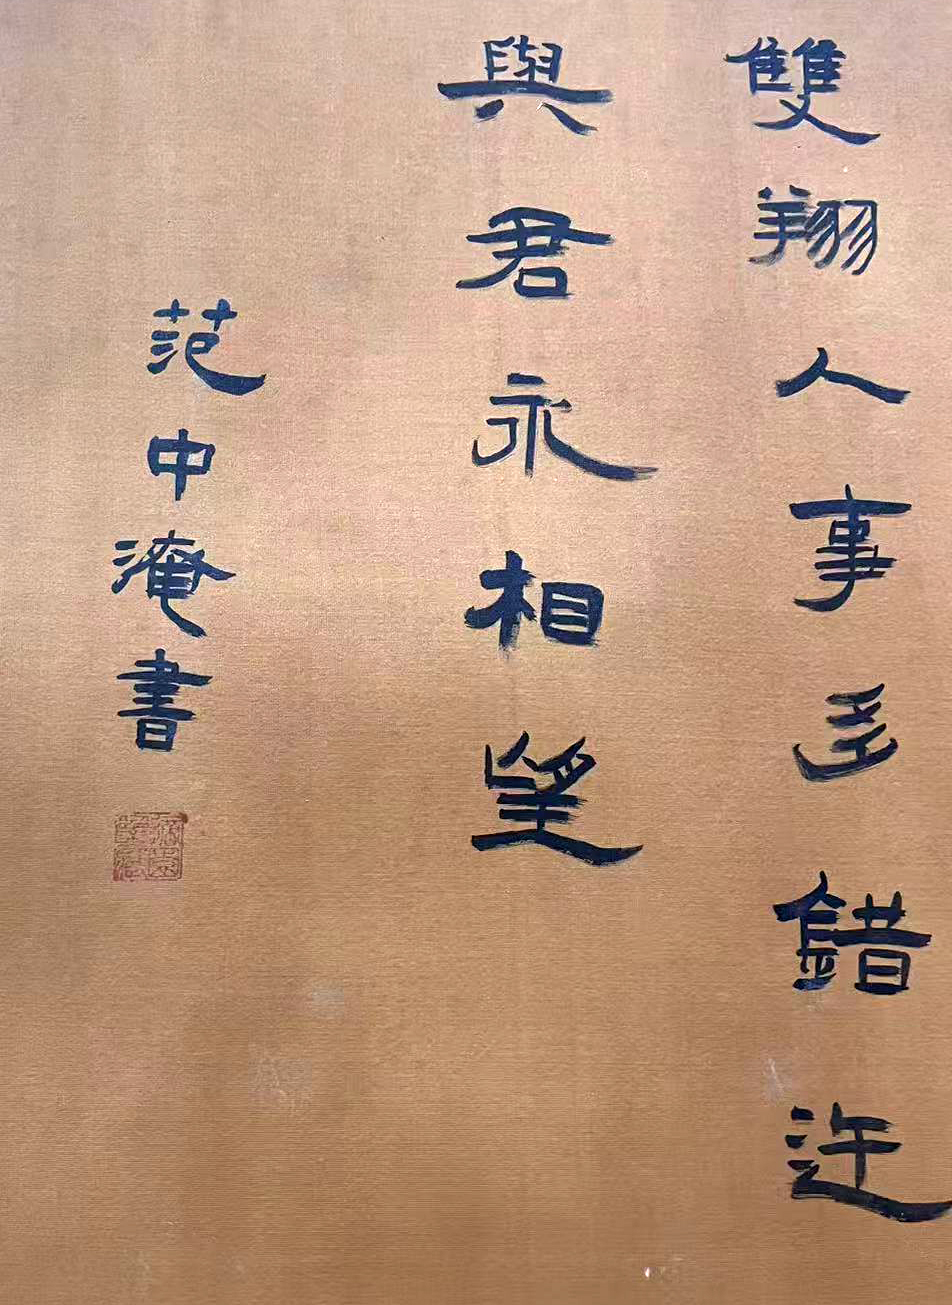 雙翔人事多錯迕
與君永相望
范中淹書